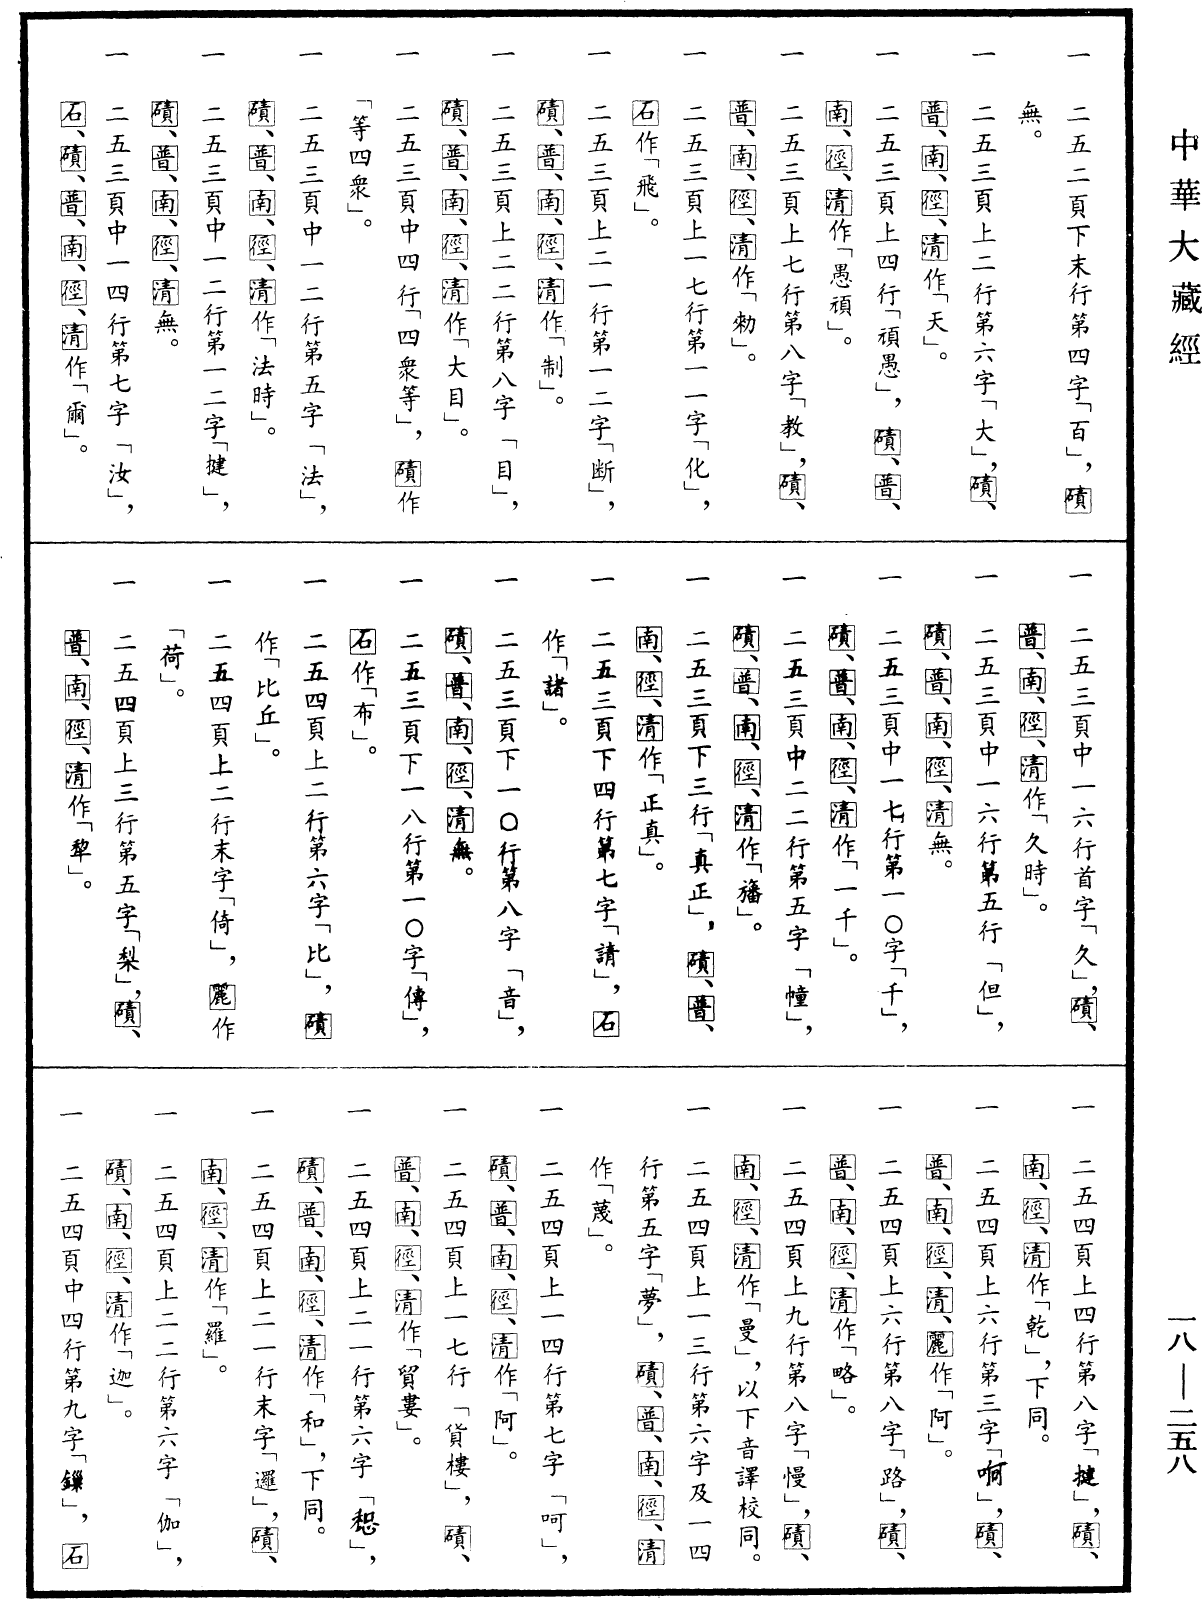 中華大藏經
一　二五二頁下末行第四字「百」，磧
無。
一　二五三頁上二行第六字「大」，磧、
普、南、徑、清作「天」。
一　二五三頁上四行「頑愚」，磧、普、
南、徑、清作「愚頑」。
一　二五三頁上七行第八字「教」，磧、
普、南、徑、清作「勑」。
一　二五三頁上一七行第一一字「化」，
石作「飛」。
一　二五三頁上二一行第一二字「断」，
磧、普、南、徑、清作「制」。
一　二五三頁上二二行第八字「目」，
磧、普、南、徑、清作「大目」。
一　二五三頁中四行「四衆等」，磧作
「等四衆」。
一　二五三頁中一二行第五字「法」，
磧、普、南、徑、清作「法時」。
一　二五三頁中一二行第一二字「揵」，
磧、普、南、徑、清無。
一　二五三頁中一四行第七字「汝」，
石、磧、普、南、徑、清作「爾」。
一　二五三頁中一六行首字「久」，磧、
普、南、徑、清作「久時」。
一　二五三頁中一六行第五行「但」，
磧、普、南、徑、清無。
一　二五三頁中一七行第一〇字「千」，
磧、普、南、徑、清作「一千」。
一　二五三頁中二二行第五字「幢」，
磧、普、南、徑、清作「旛」。
一　二五三頁下三行「真正」，磧、普、
南、徑、清作「正真」。
一　二五三頁下四行第七字「請」，石
作「諸」。
一　二五三頁下一〇行第八字「音」，
磧、普、南、徑、清無。
一　二五三頁下一八行第一〇字「傳」，
石作「布」。
一　二五四頁上二行第六字「比」，磧
作「比丘」。
一　二五四頁上二行末字「倚」，麗作
「荷」。
一　二五四頁上三行第五字「梨」，磧、
普、南、徑、清作「犂」。
一　二五四頁上四行第八字「揵」，磧、
南、徑、清作「乾」，下同。
一　二五四頁上六行第三字「啊」，磧、
普、南、徑、清、麗作「阿」。
一　二五四頁上六行第八字「路」，磧、
普、南、徑、清作「略」。
一　二五四頁上九行第八字「慢」，磧、
南、徑、清作「曼」，以下音譯校同。
一　二五四頁上一三行第六字及一四
行第五字「夢」，磧、普、南、徑、清
作「蔑」。
一　二五四頁上一四行第七字「呵」，
磧、普、南、徑、清作「阿」。
一　二五四頁上一七行「貨樓」，磧、
普、南、徑、清作「貿婁」。
一　二五四頁上二一行第六字「惒」，
磧、普、南、徑、清作「和」，下同。
一　二五四頁上二一行末字「邏」，磧、
南、徑、清作「羅」。
一　二五四頁上二二行第六字「伽」，
磧、南、徑、清作「迦」。
一　二五四頁中四行第九字「鏁」，石
一八—二五八